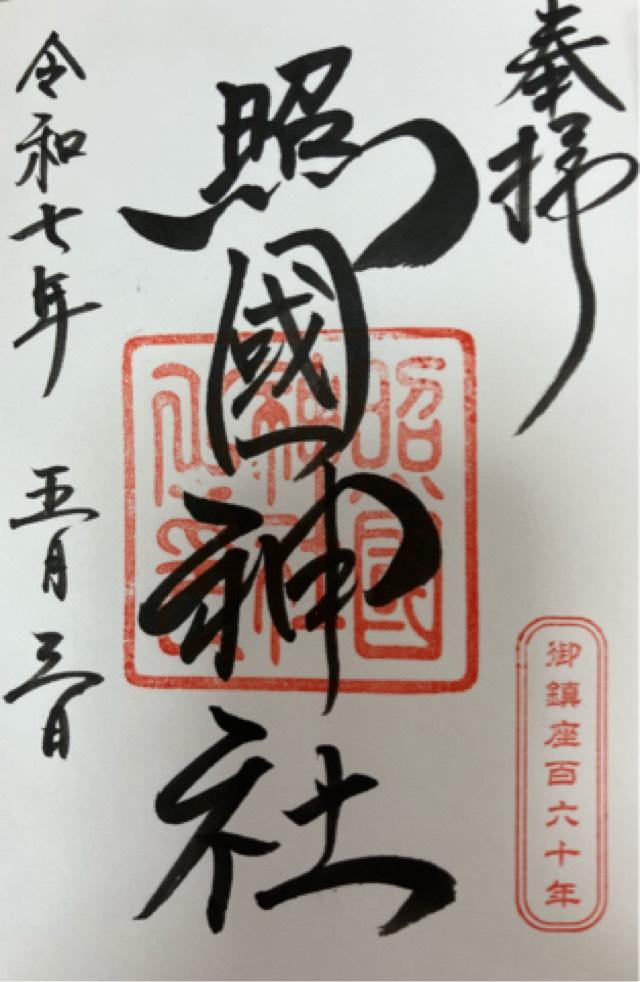 奉拝
照國神社
照國
神社
之印
御鎮座百六十年
令和七年 五月三日